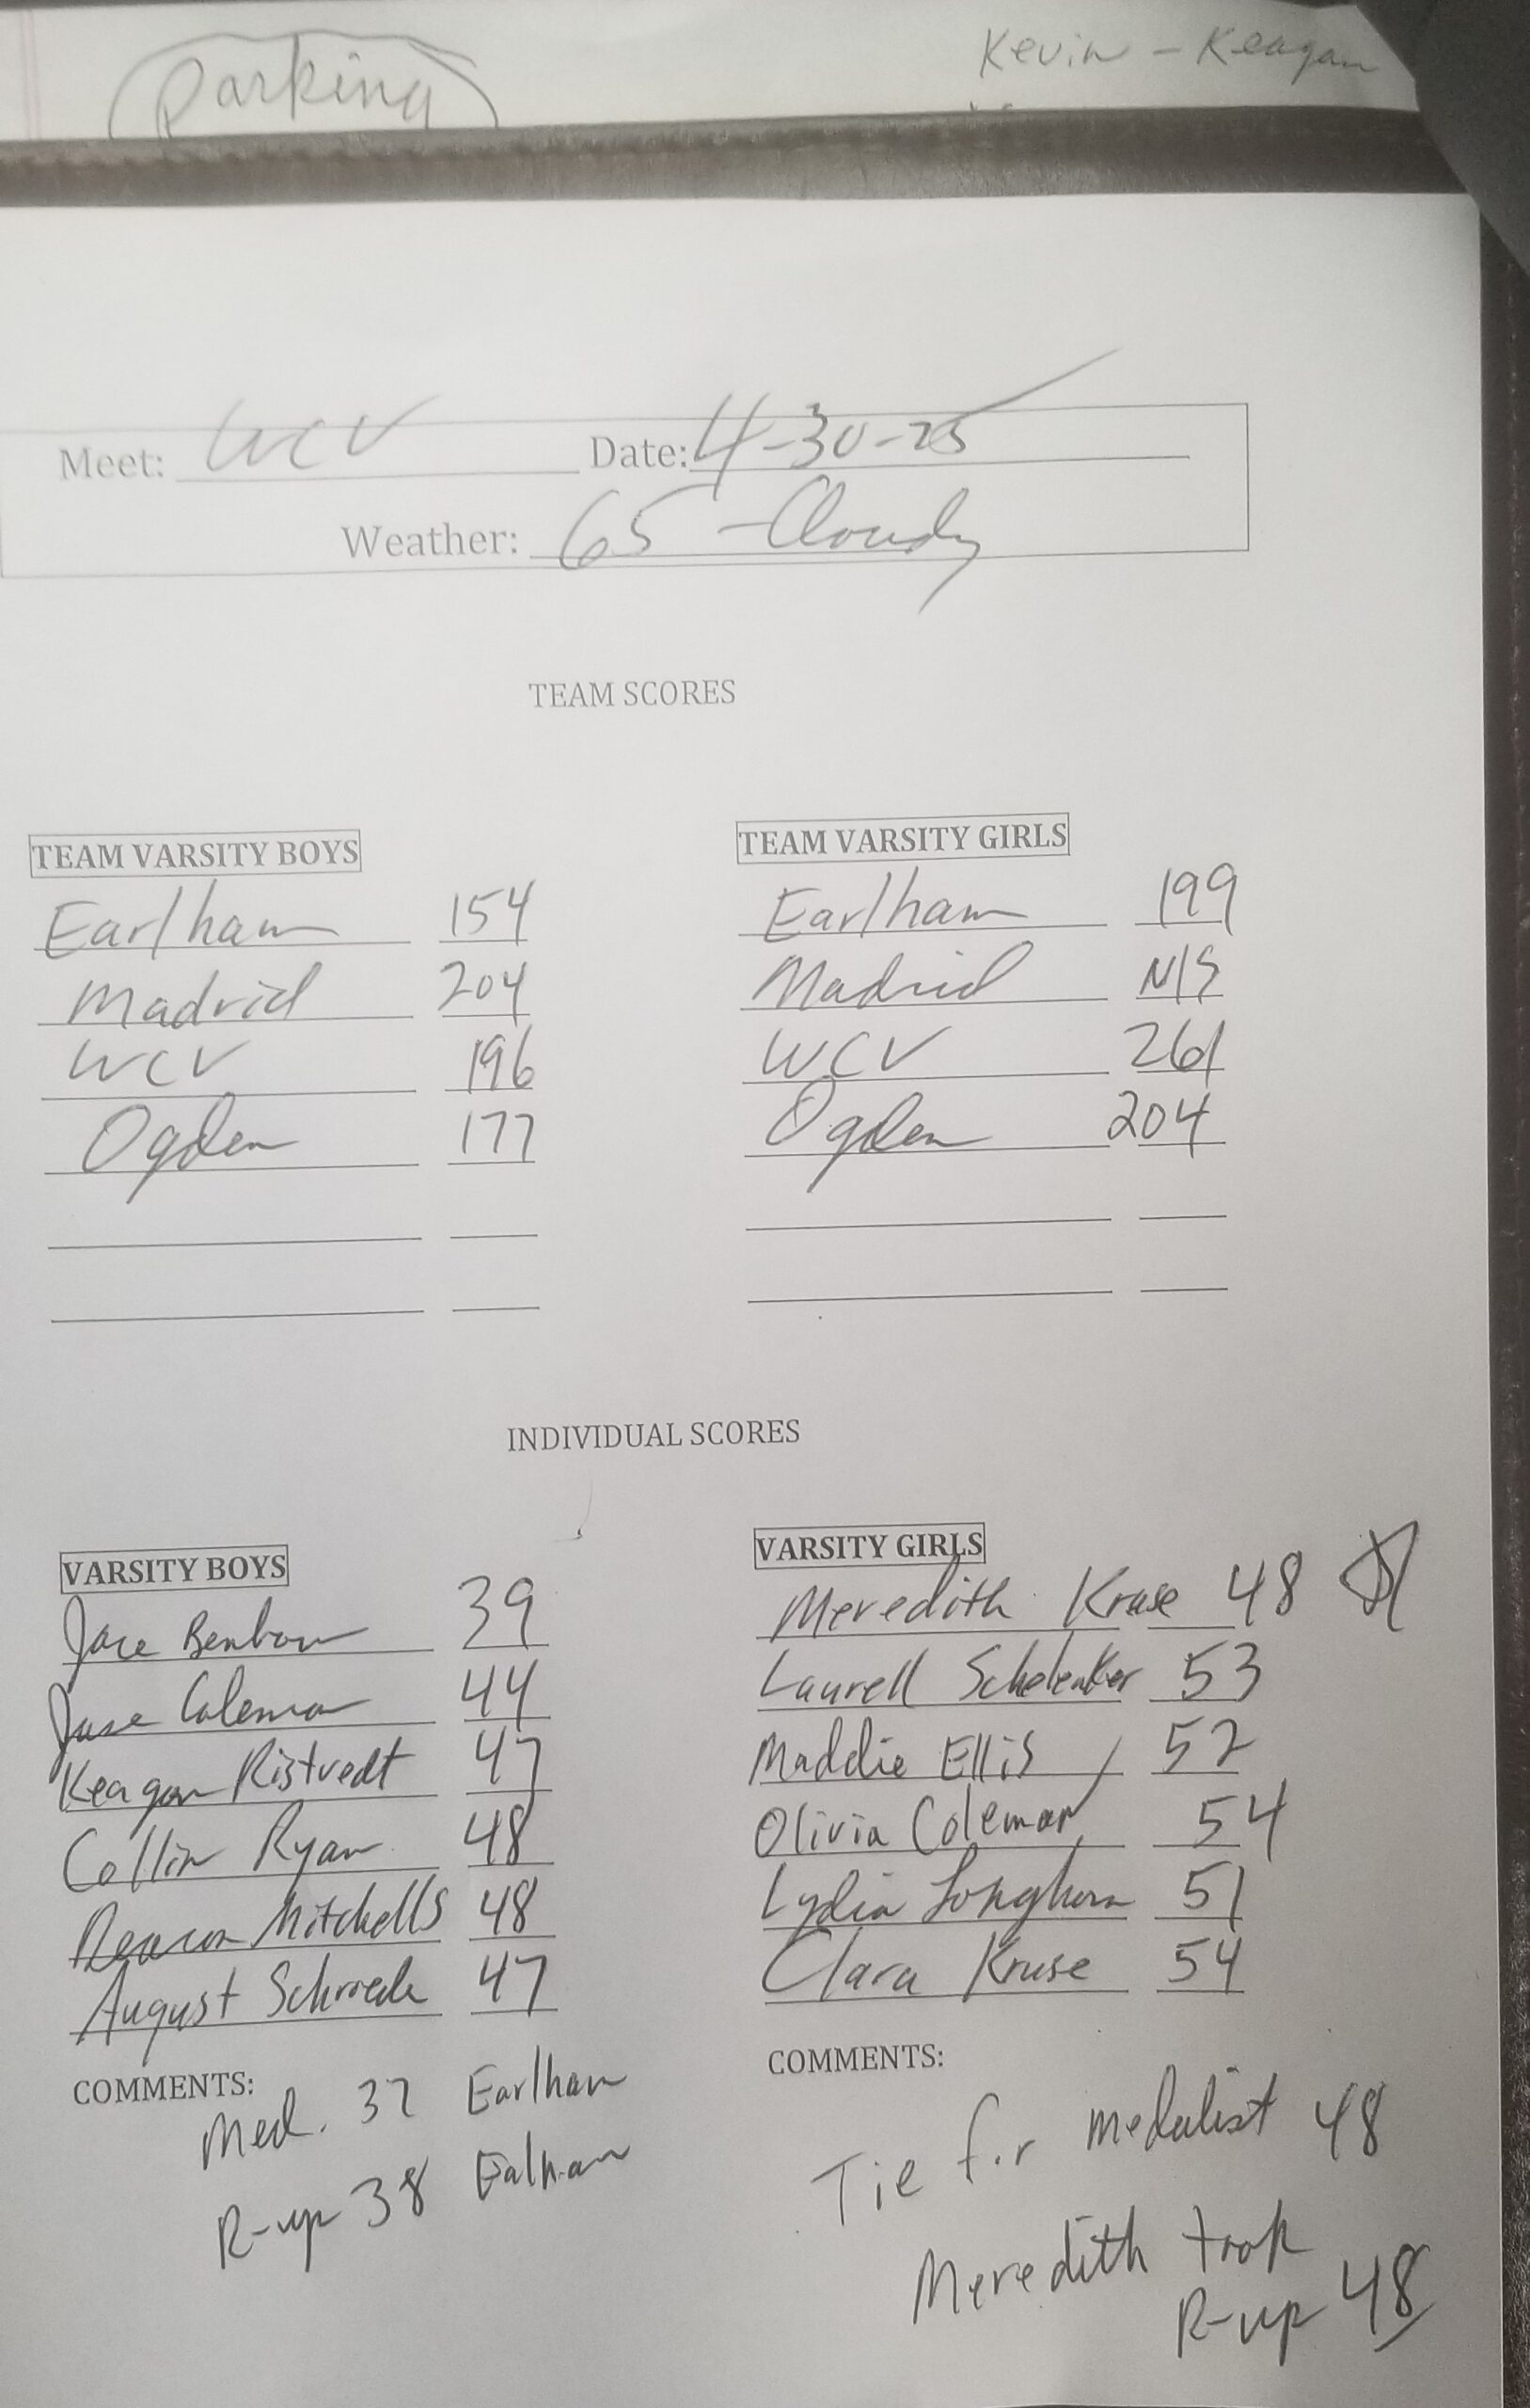 Parking
Kevin - Keagan
Meet: WCV Date: 4-30-25
Weather: 65 - Cloudy
TEAM SCORES
TEAM VARSITY BOYS
Earlham 154
Madrid 204
WCV 196
Ogden 177
TEAM VARSITY GIRLS
Earlham 199
Madrid N/S
WCV 261
Ogden 204
INDIVIDUAL SCORES
VARSITY BOYS
Jace Benbow 39
Jase Coleman 44
Keagan Ristvedt 47
Collin Ryan 48
Deacon Mitchells 48
August Schroeder 47
COMMENTS:
Med. 37 Earlham
R-up 38 Ealham
VARSITY GIRLS
Meredith Kruse 48
Laurell Schelenker 53
Maddie Ellis 52
Olivia Coleman 54
Lydia Longhorn 51
Clara Kruse 54
COMMENTS:
Tie for medalist 48
Meredith took
R-up 48